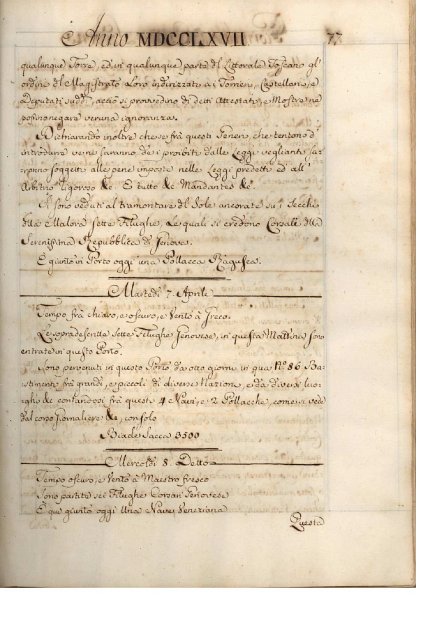 Anno MDCCLXVII 77
qualunque Torre, ed in qualunque parte del Littorale Toscano gl'
ordini del Magistrato Loro indirizzati a' Torrieri, Castellani, e
Deputati sudd.i, acciò si provvedino di detti Attestati, e Mostre, ne
possino negare veruna ignoranza.
Dichiarando inoltre che se frà questi Generi, che tentono d'
introdurre ve ne saranno de i proibiti dalle Leggi veglianti, sa-
ranno soggetti alle pene imposte nelle Leggi predette ed all'
Arbitrio rigoroso &c. E tutto &c. Mandantes &c.
Si sono veduti al tramontare del Sole ancorate su i Secchi
della Malora sette Filughe, Le quali si credono Corsale della
Serenissima Repubblica di Genova.
E giunto in Porto oggi una Pollacca Ragusea.
Martedì 7. Aprile
Tempo frà chiaro, e oscuro, e Vento à Greco.
Le sopradescritte sette Filughe Genovese, in questa Mattina sono
entrate in questo Porto.
Sono pervenuti in questo Porto da otto giorni in quà N.o 86 Ba-
stimenti frà grandi, e piccoli di diverse Nazioni, e da diversi luo-
ghi &c. contandosi frà questi 4 Navi, e 2 Pollacche, come si vede
dal corso Giornaliero &c., con solo
Biade Sacca 3500
Mercoldì 8. Detto
Tempo oscuro, e Vento à Maestro fresco
Sono partite sei Filughe Corsare Genovese
E que giunto oggi Una Nave Veneziana
Questa